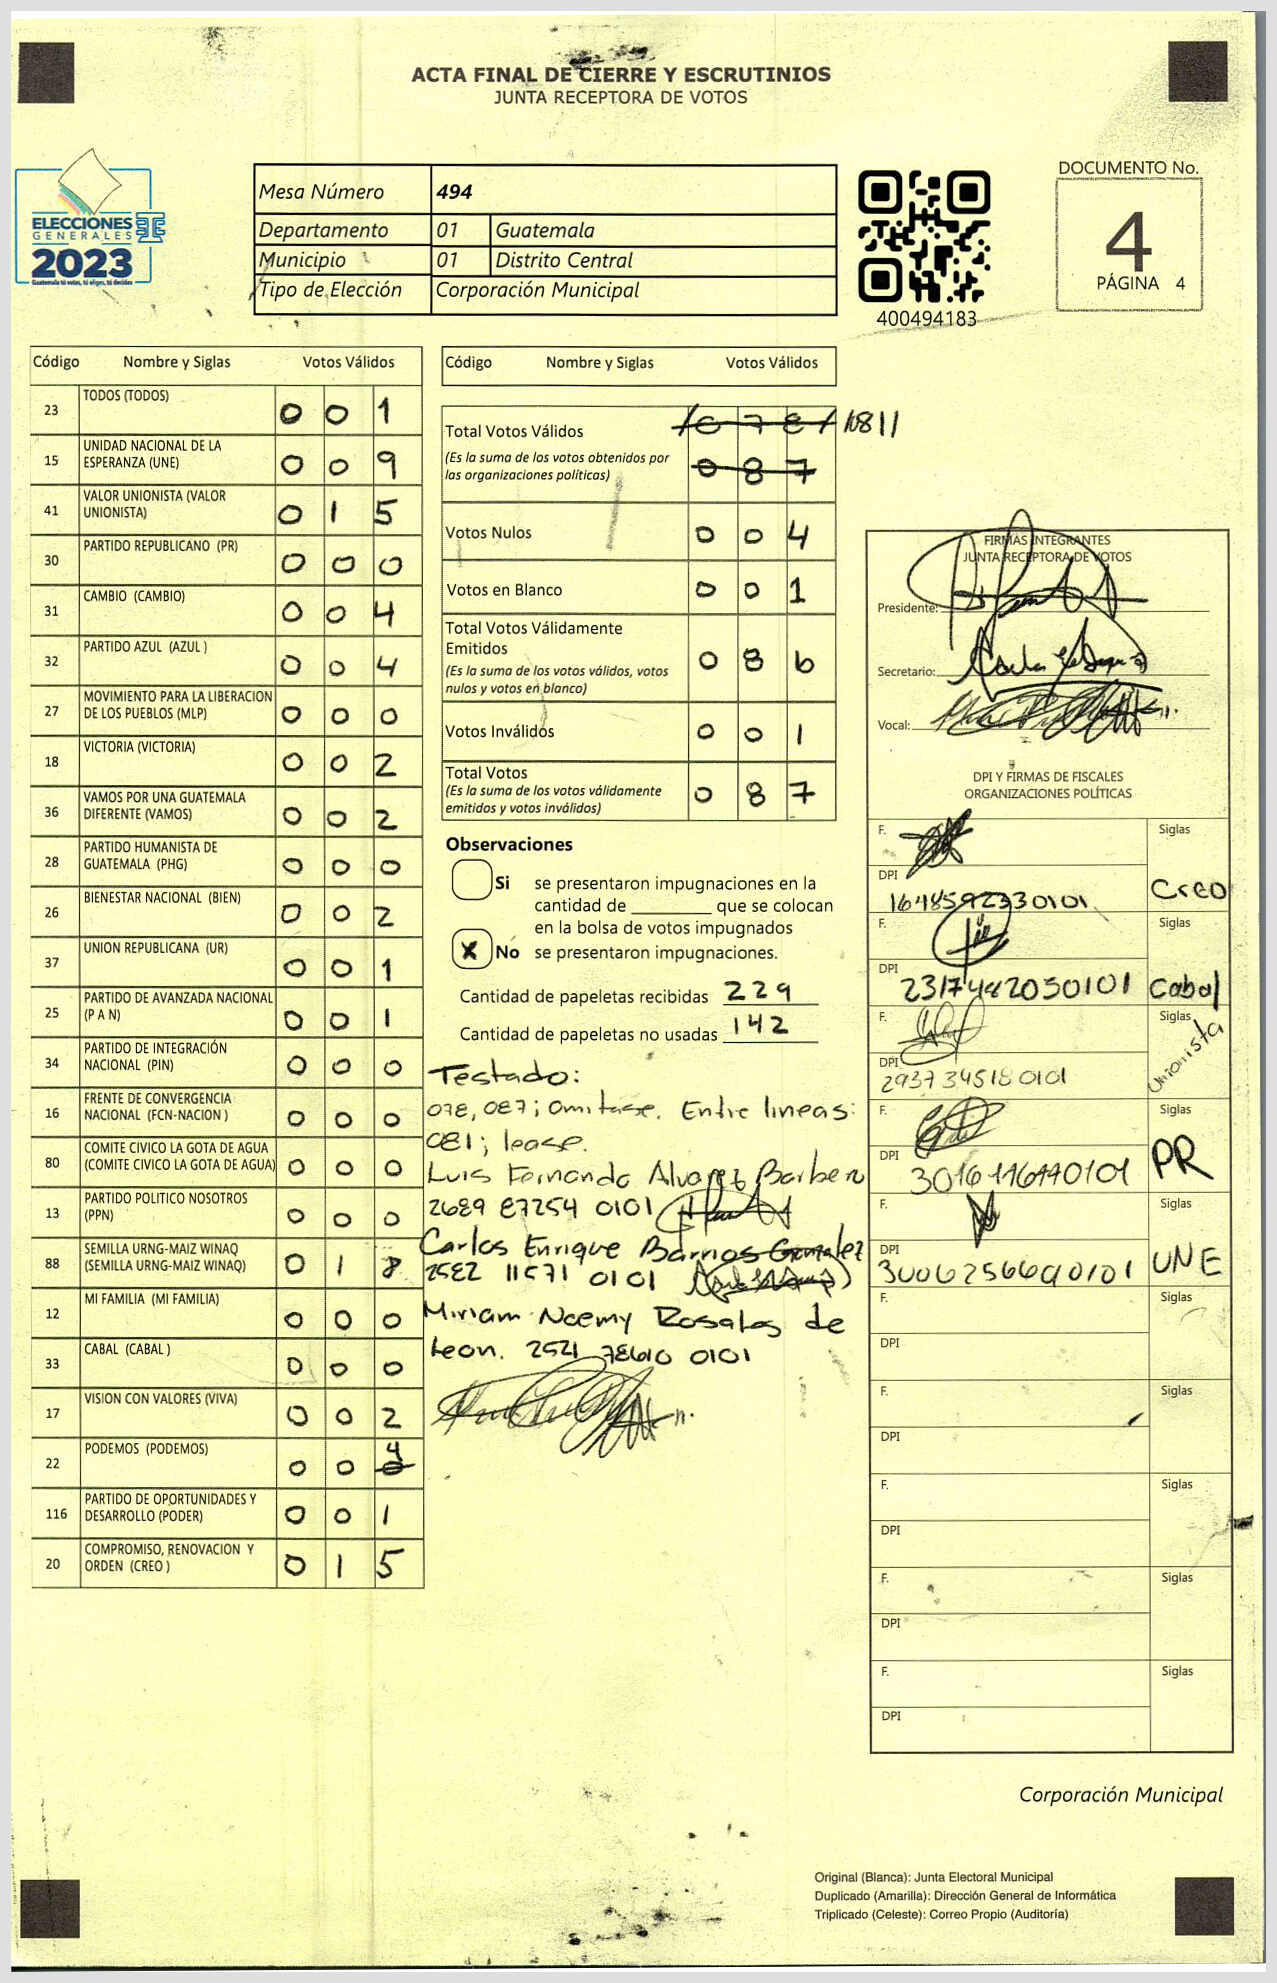 ACTA FINAL DE CIERRE Y ESCRUTINIOS
JUNTA RECEPTORA DE VOTOS
ELECCIONES
GENERALES
2023
Guatemala tú votas, tú eliges, tú decides
Mesa Número 494
Departamento 01 Guatemala
Municipio 01 Distrito Central
Tipo de Elección Corporación Municipal
400494183
DOCUMENTO No.
4
PÁGINA 4
Código Nombre y Siglas Votos Válidos
23 TODOS (TODOS) 0 0 1
15 UNIDAD NACIONAL DE LA ESPERANZA (UNE) 0 0 9
41 VALOR UNIONISTA (VALOR UNIONISTA) 0 1 5
30 PARTIDO REPUBLICANO (PR) 0 0 0
31 CAMBIO (CAMBIO) 0 0 4
32 PARTIDO AZUL (AZUL ) 0 0 4
27 MOVIMIENTO PARA LA LIBERACION DE LOS PUEBLOS (MLP) 0 0 0
18 VICTORIA (VICTORIA) 0 0 2
36 VAMOS POR UNA GUATEMALA DIFERENTE (VAMOS) 0 0 2
28 PARTIDO HUMANISTA DE GUATEMALA (PHG) 0 0 0
26 BIENESTAR NACIONAL (BIEN) 0 0 2
37 UNION REPUBLICANA (UR) 0 0 1
25 PARTIDO DE AVANZADA NACIONAL (P A N) 0 0 1
34 PARTIDO DE INTEGRACIÓN NACIONAL (PIN) 0 0 0
16 FRENTE DE CONVERGENCIA NACIONAL (FCN-NACION ) 0 0 0
80 COMITE CIVICO LA GOTA DE AGUA (COMITE CIVICO LA GOTA DE AGUA) 0 0 0
13 PARTIDO POLITICO NOSOTROS (PPN) 0 0 0
88 SEMILLA URNG-MAIZ WINAQ (SEMILLA URNG-MAIZ WINAQ) 0 1 8
12 MI FAMILIA (MI FAMILIA) 0 0 0
33 CABAL (CABAL ) 0 0 0
17 VISION CON VALORES (VIVA) 0 0 2
22 PODEMOS (PODEMOS) 0 0 4
116 PARTIDO DE OPORTUNIDADES Y DESARROLLO (PODER) 0 0 1
20 COMPROMISO, RENOVACION Y ORDEN (CREO ) 0 1 5
Código Nombre y Siglas Votos Válidos
Total Votos Válidos
(Es la suma de los votos obtenidos por
las organizaciones políticas) 0 8 7
Votos Nulos 0 0 4
Votos en Blanco 0 0 1
Total Votos Válidamente
Emitidos 0 8 6
(Es la suma de los votos válidos, votos
nulos y votos en blanco)
Votos Inválidos 0 0 1
Total Votos 0 8 7
(Es la suma de los votos válidamente
emitidos y votos inválidos)
Observaciones
Si se presentaron impugnaciones en la
cantidad de ________ que se colocan
en la bolsa de votos impugnados
X No se presentaron impugnaciones.
Cantidad de papeletas recibidas 229
Cantidad de papeletas no usadas 142
Testado:
078, 087; omitase. Entre lineas:
081; lease.
Luis Fernando Alvarez Barbero
2689 87254 0101
Carlos Enrique Barrios Gonzalez
2582 11571 0101
Miriam Noemy Rosales de
Leon. 2521 78610 0101
FIRMAS INTEGRANTES
JUNTA RECEPTORA DE VOTOS
Presidente:
Secretario:
Vocal:
DPI Y FIRMAS DE FISCALES
ORGANIZACIONES POLÍTICAS
F. Siglas
DPI 1648592330101 Creo
F. Siglas
DPI 2317482050101 Cabal
F. Siglas
DPI 2937345180101 Unionista
F. Siglas
DPI PR
F. Siglas
DPI UNE
F. Siglas
DPI
F. Siglas
DPI
F. Siglas
DPI
F. Siglas
DPI
F. Siglas
DPI
Corporación Municipal
Original (Blanca): Junta Electoral Municipal
Duplicado (Amarilla): Dirección General de Informática
Triplicado (Celeste): Correo Propio (Auditoría)